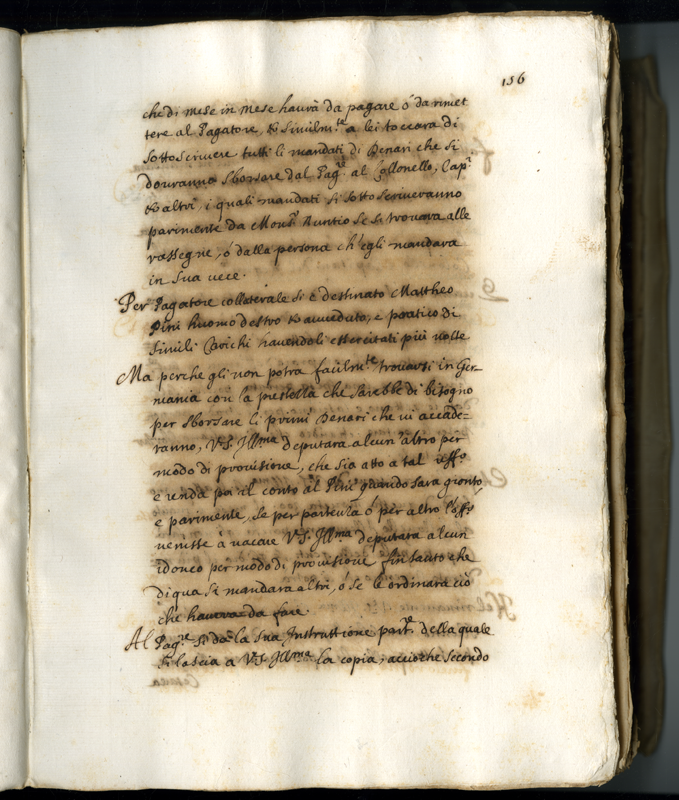 156
che di mese in mese haurà da pagare ó da rimet
tere al Pagatore, & similmte a lei toccara di
sottoscrivere tutti li mandati di Denari che si
douranno sborsare dal Pagre al Collonello, Capi
& altri, i quali mandati si sottoscriveranno
parimente da Monsr Nuntio se si trouara alle
rassegne, ó dalla persona ch'egli mandara
in sua uece.
Per Pagatore collaterale si è destinato Mattheo
Pini huomo destro & aueduto, e pratico di
simili Carichi hauendoli essercitati più uolte
Ma perche gli non potra facilmte trouarsi in Ger-
mania con la prestezza che sarebbe di bisogno
per sborsare li primi Denari che ui accade-
ranno, V.S. Illma deputara alcun altro per
modo di prouisione, che sia atto a tal uffo
e renda poi il conto al Pini quando sara gionto,
e parimente, se per partenza ó per altro l'offo
uenisse à uacare V.S. Illma deputara alcun
idoneo per modo di prouisione fin tanto che
di qua si mandara altri, ó se le ordinara ciò
che haura da fare.
Al Pagre si da la sua Instruttione partre della quale
si lascia a V.S. Illma la copia, accioche secondo